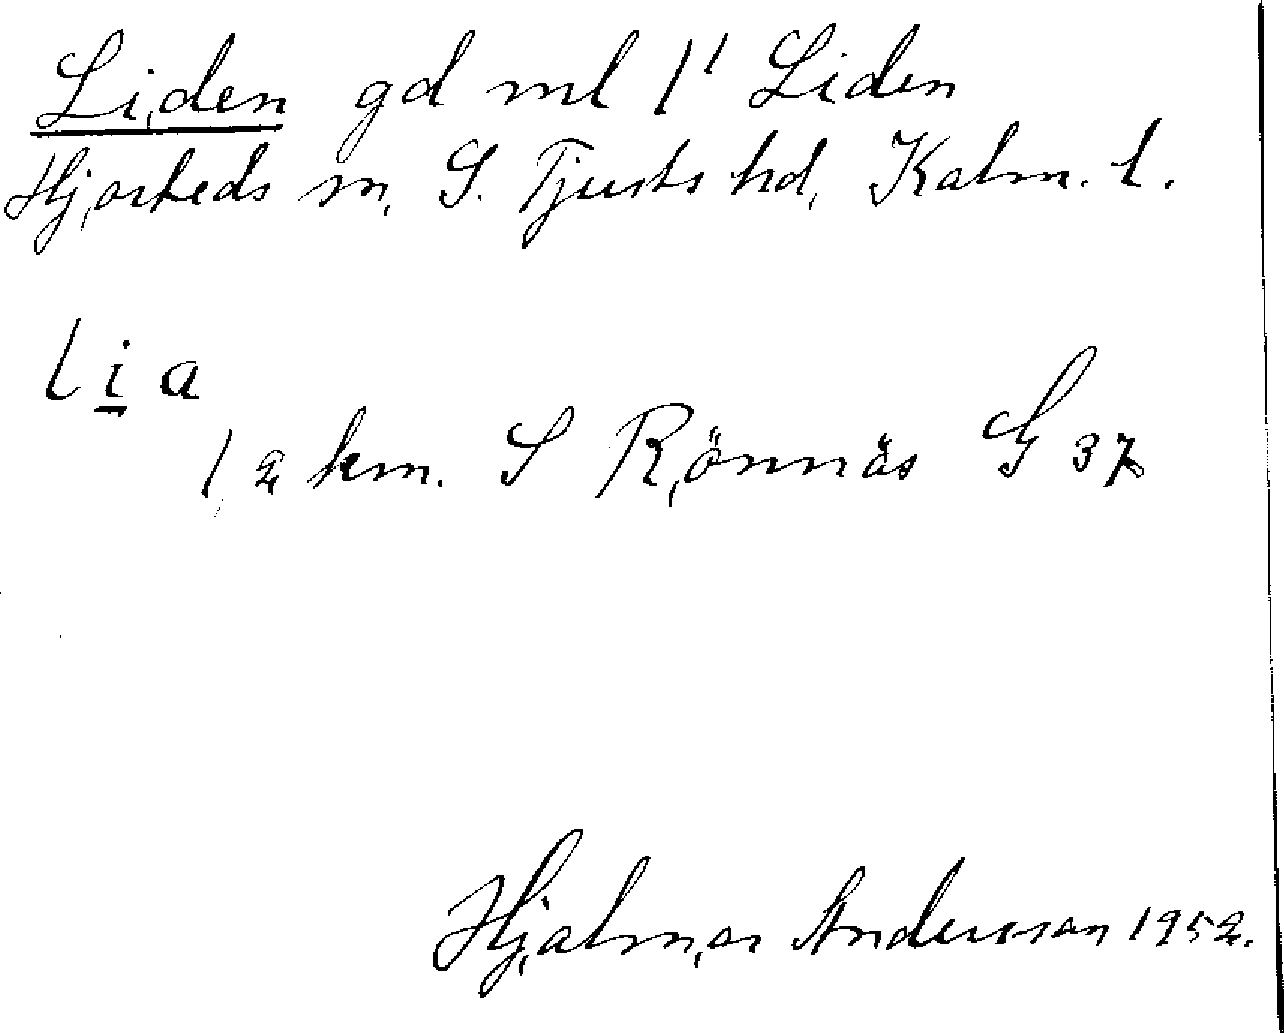 Liden gd ml 1' Liden
Hjorteds sn, S. Tjusts hd, Kalm. l.
lia
1,2 km. S Rönnäs G 37
Hjalmar Andersson 1952.